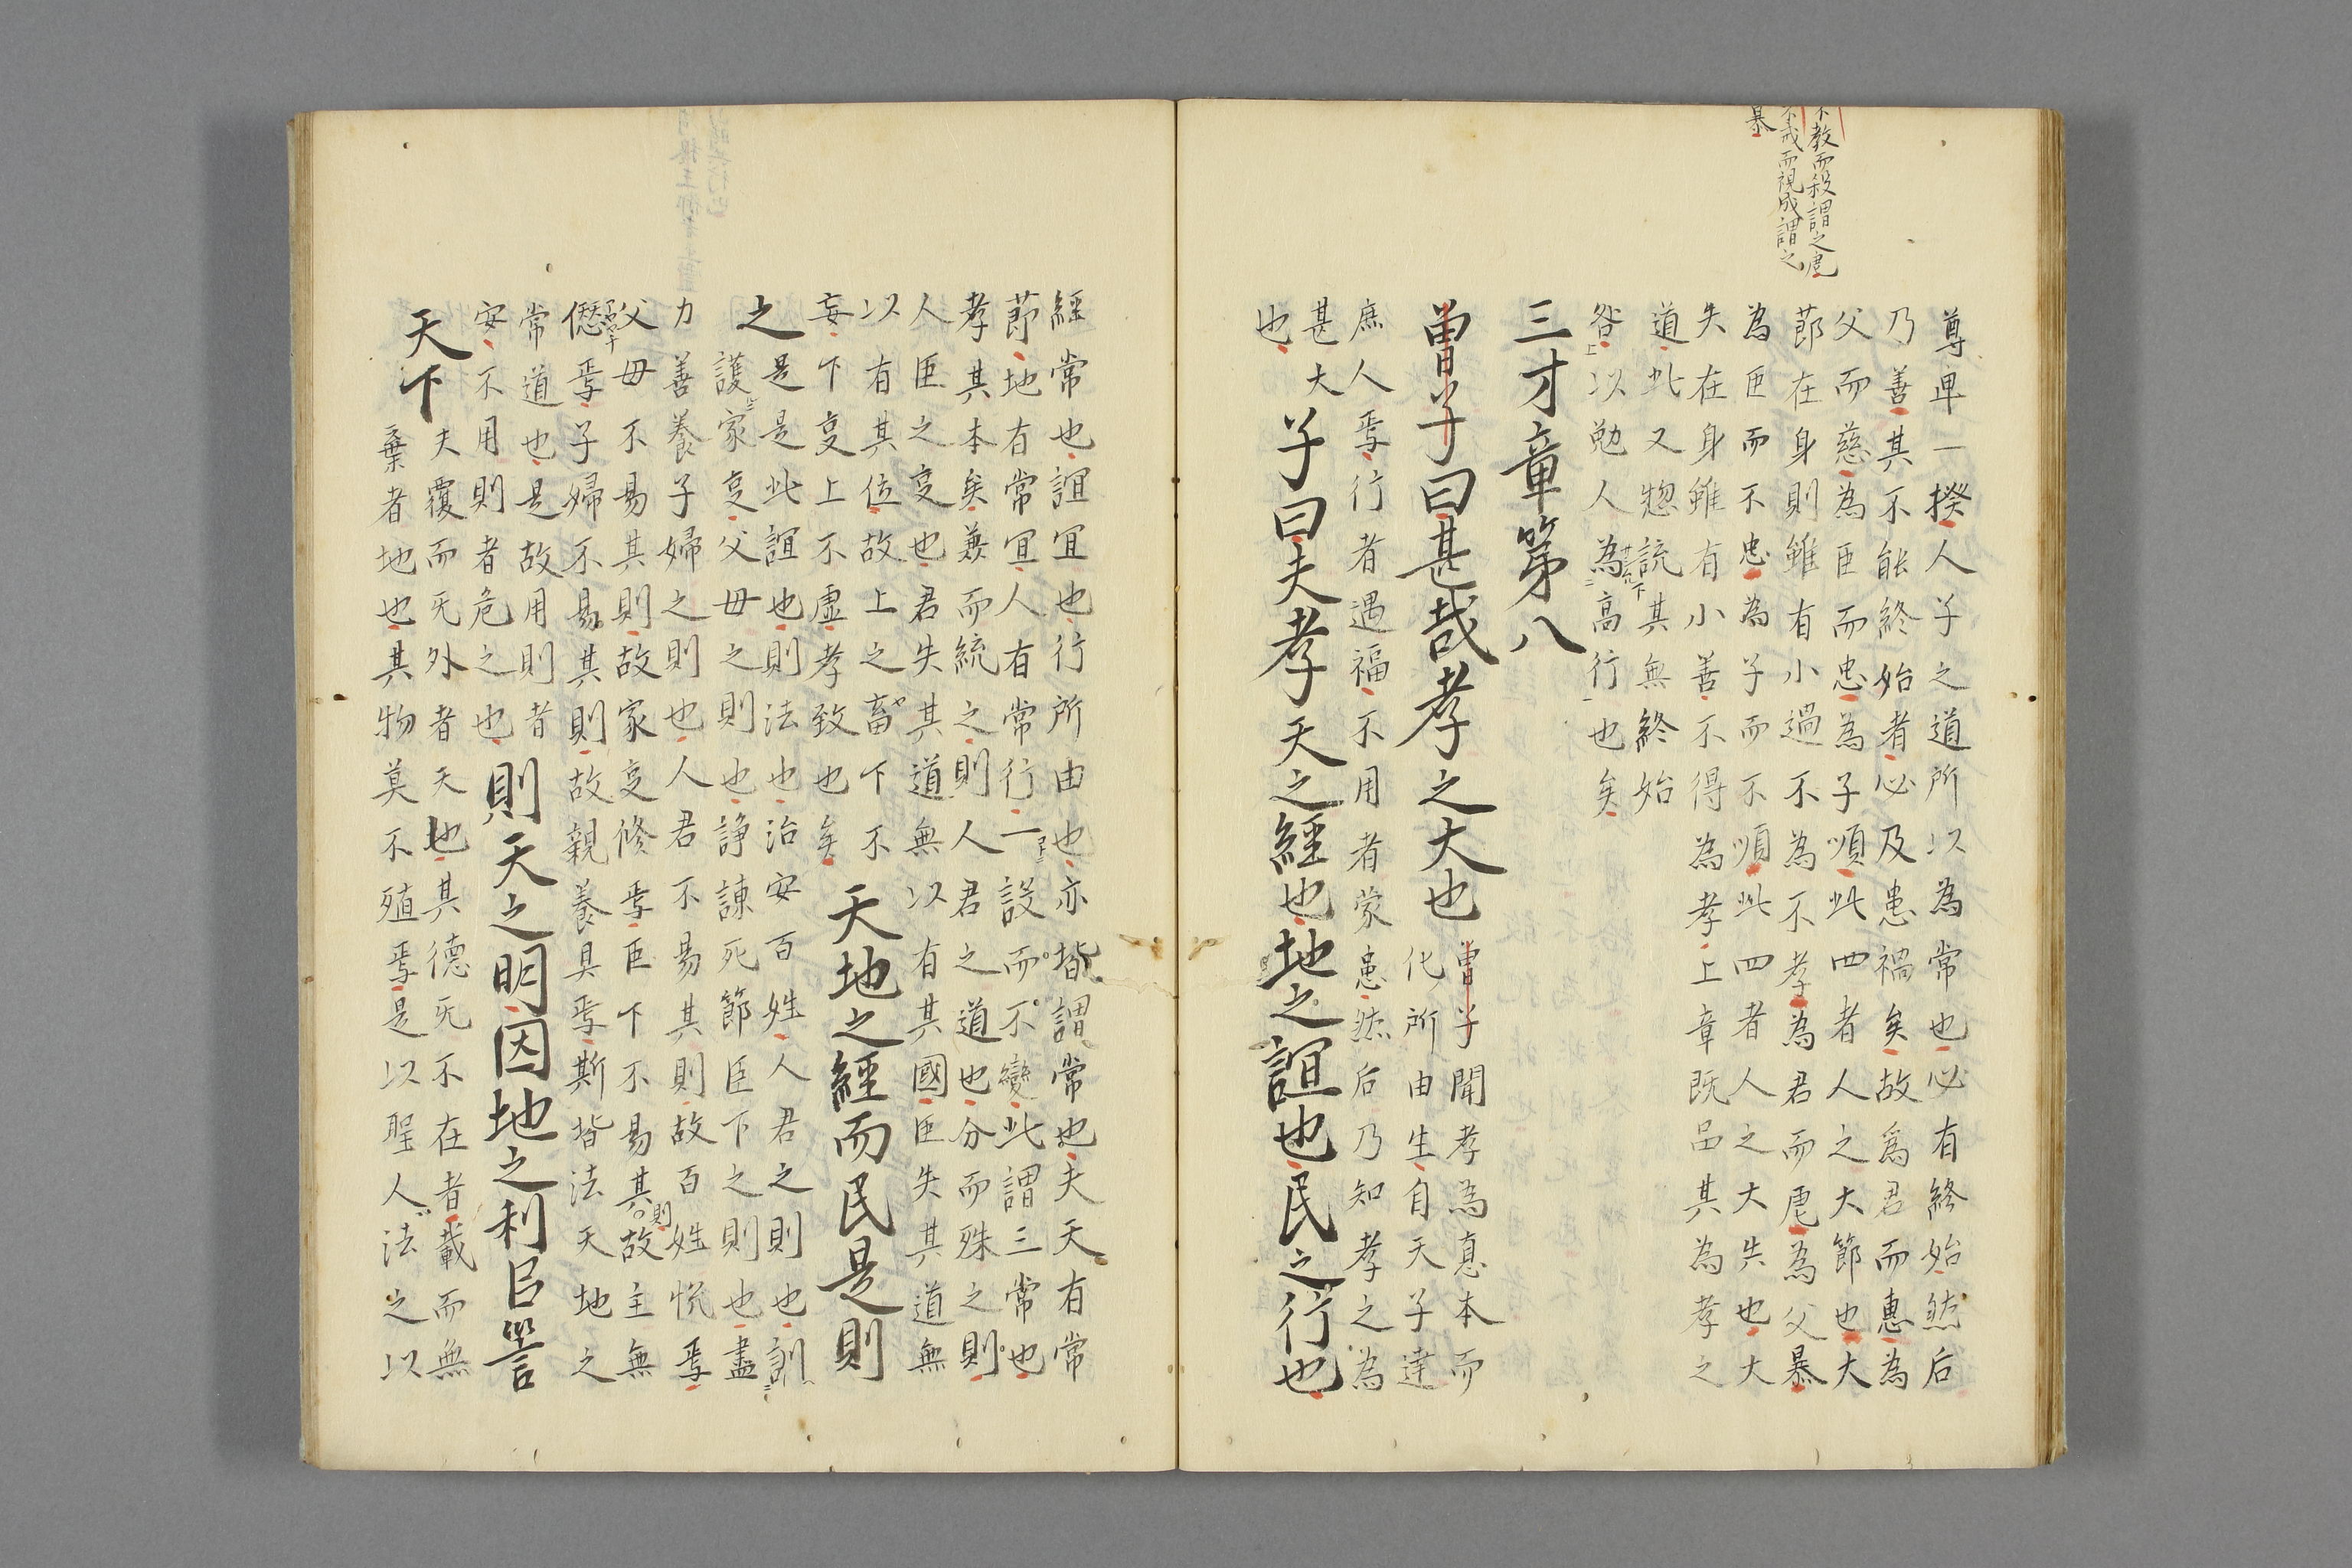 不教而殺謂之虐
不戒而視成謂之
暴
尊卑一揆人子之道所以為常也必有終始然后
乃善其不能終始者必及患禍矣故為君而惠為
父而慈為臣而忠為子順此四者人之大節也大
節在身則雖有小過不為不孝為君而虐為父暴
為臣而不忠為子而不順此四者人之大失也大
失在身雖有小善不得為孝上章既品其為孝之
道此又惣説其無終始
咎以勉人為高行也矣
三才章第八
曽子曰甚哉孝之大也
曽子聞孝為悳本而
化所由生自天子達
庶人焉行者遇福不用者蒙患然后乃知孝之為
甚大
也
子曰夫孝天之經也地之誼也民之行也
經常也誼宜也行所由也亦皆謂常也夫天有常
莭地有常宜人有常行一設而不變此謂三常也
孝其本矣兼而統之則人君之道也分而殊之則
人臣之㕝也君失其道無以有其國臣失其道無
以有其位故上之畜下不
妄下㕝上不虚孝致也矣
天地之經而民是則
之
是是此誼也則法也治安百姓人君之則也訓
護家㕝父毋之則也諍諌死節臣下之則也盡
力善養子婦之則也人君不易其則故百姓悦焉
父毋不易其則故家㕝修焉臣下不易其則故主無
僽焉子婦不易其則故親養具焉斯皆法天地之
常道也是故用則者
安不用則者危之也
則天之明因地之利㠯訔
天下
夫覆而旡外者天也其德旡不在者載而無
棄者地也其物莫不殖焉是以聖人法之以